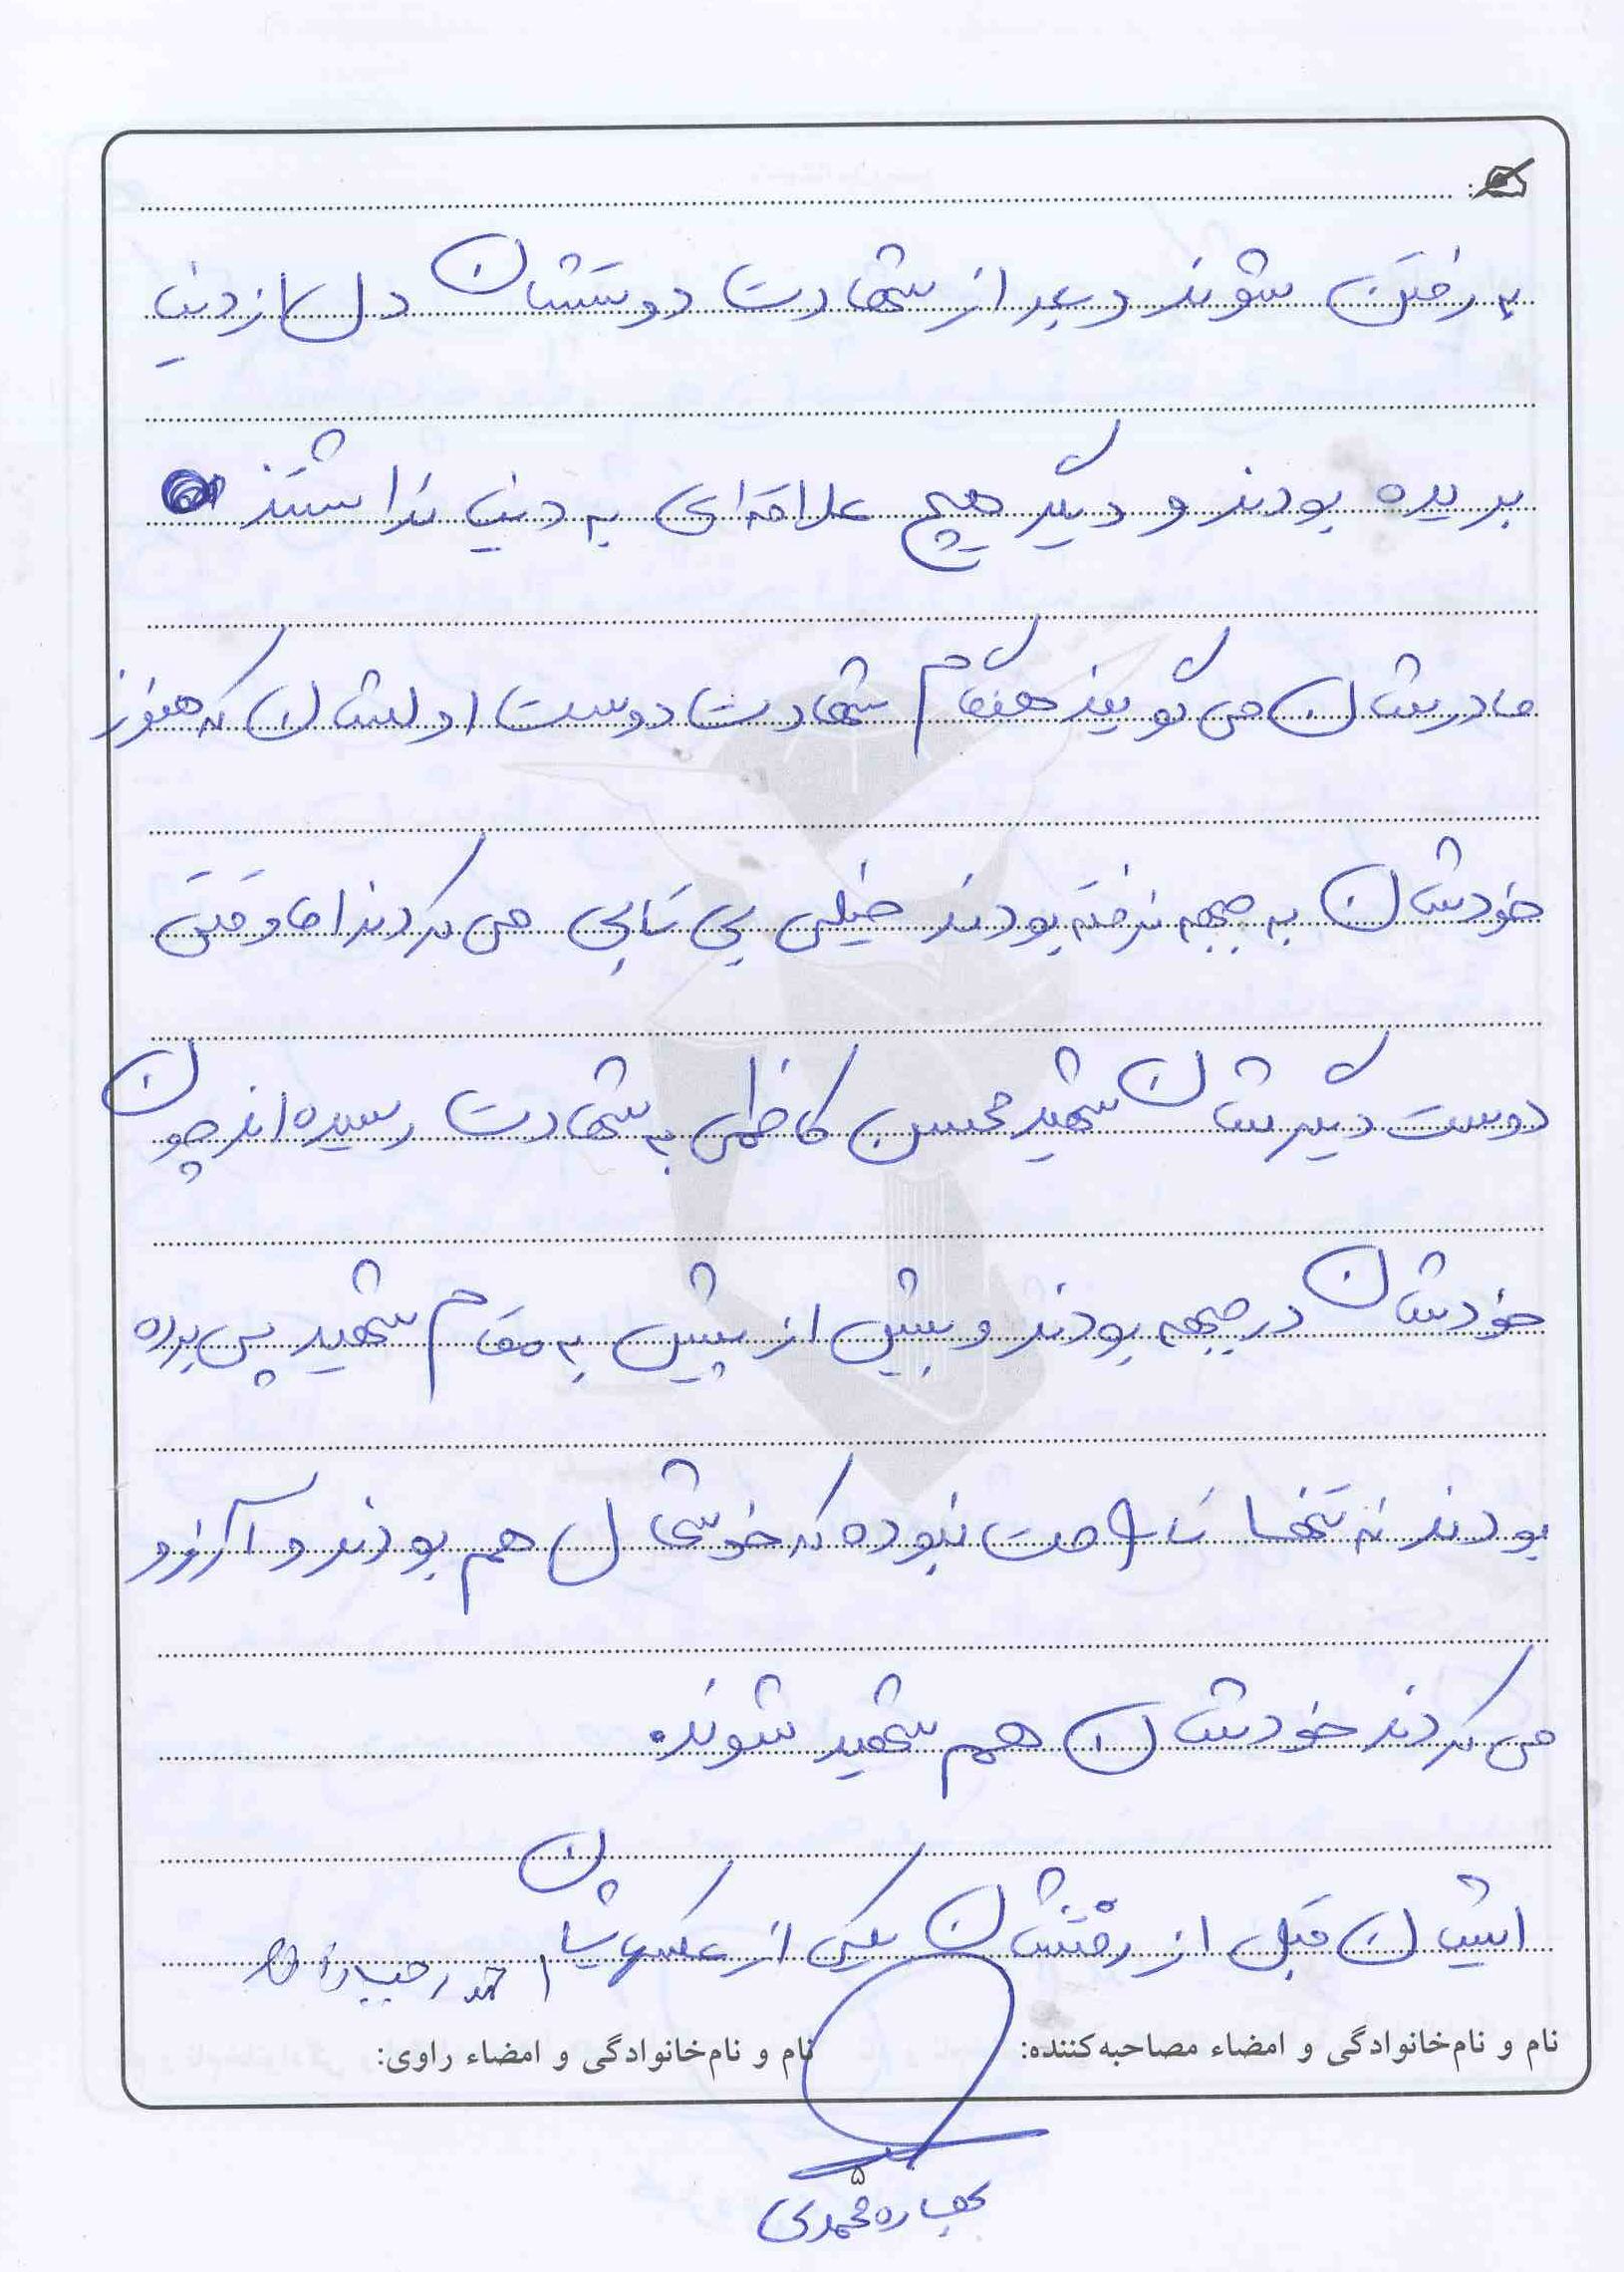 به رفتن شوند و بعد از شهادت دوستشان دل از دنیا
بریده بودند و دیگر هیچ علاقه‌ای به دنیا نداشتند
مادرشان می گویند هنگام شهادت دوست اولشان که هنوز
خودشان به جبهه نرفته بودند خیلی بی تابی می کردند اما وقتی
دوست دیگرشان شهید محسن کاظمی به شهادت رسیده اند چون
خودشان در جبهه بودند و بیش از پیش به مقام شهید پی برده
بودند نه تنها ناراحت نبوده که خوشحال هم بودند و آرزو
می کردند خودشان هم شهید شوند.
ایشان قبل از رفتنشان یکی از عکس شان
نام و نام‌خانوادگی و امضاء مصاحبه‌کننده: نام و نام‌خانوادگی و امضاء راوی:
۵
محمدی